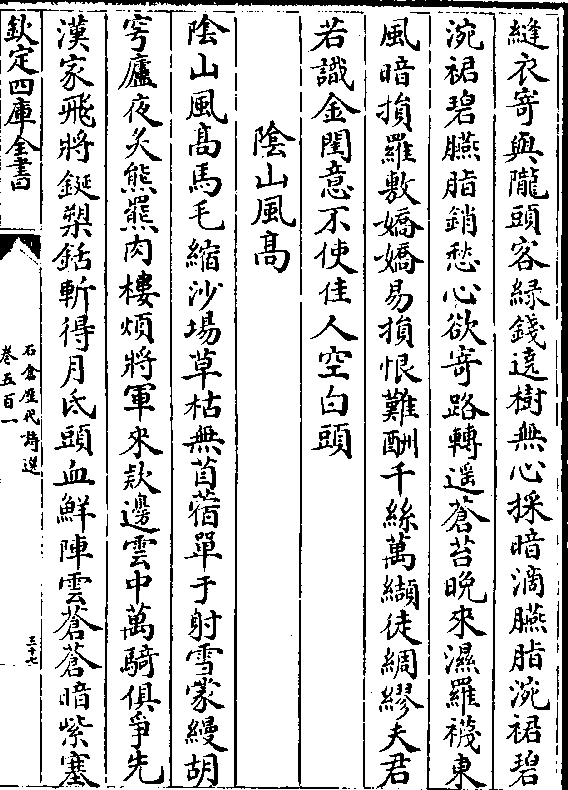 縫衣寄與隴頭客綠錢遶樹無心採暗滴臙脂涴裙碧
涴裙碧臙脂銷愁心欲寄路轉遥蒼苔晚來濕羅襪東
風暗損羅敷嬌嬌易損恨難酬千絲萬纈徒綢繆夫君
若識金閨意不使佳人空白頭
陰山風高
陰山風髙馬毛縮沙場草枯無苜蓿單于射雪蒙縵胡
穹廬夜炙熊羆肉樓煩將軍來欵邊雲中萬騎俱爭先
漢家飛將鋋槊銛斬得月氐頭血鮮陣雲蒼蒼暗紫塞
欽定四庫全書
石倉歷代詩選
卷五百一
三十七